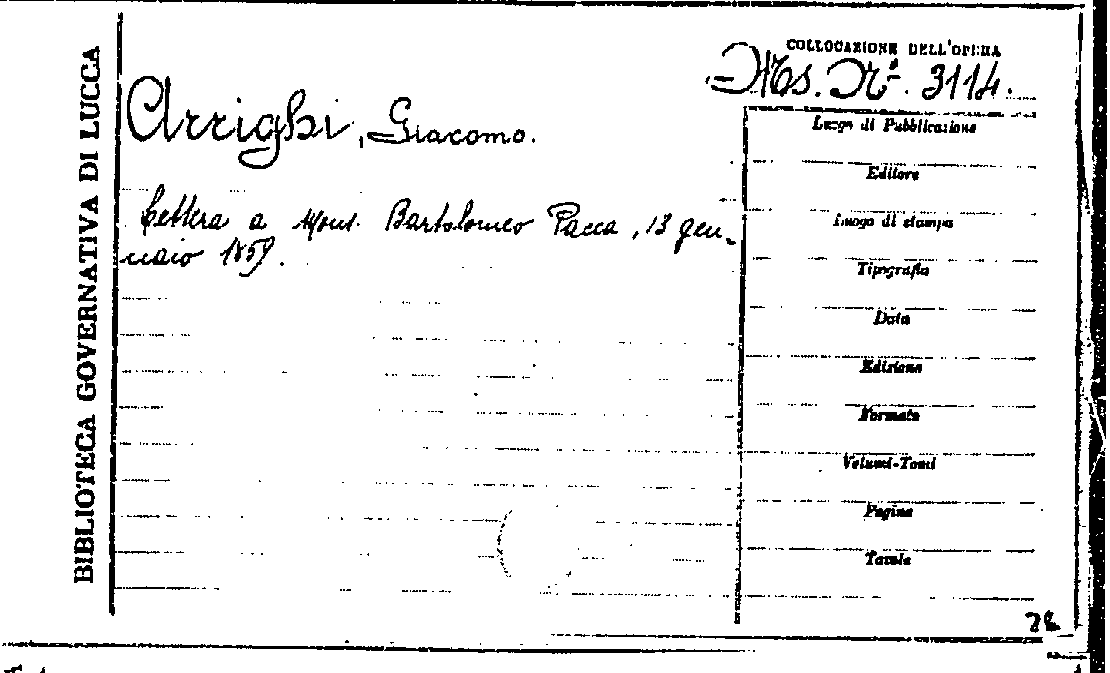 BIBLIOTECA GOVERNATIVA DI LUCCA
COLLOCAZIONE DELL'OPERA
Ms. N°. 3114.
Arrighi, Giacomo.
Lettera a Mons. Bartolomeo Pacca, 13 gen-
naio 1859.
Luogo di Pubblicazione
Editore
Luogo di stampa
Tipografia
Data
Edizione
Formato
Volumi-Tomi
Pagine
Tavole